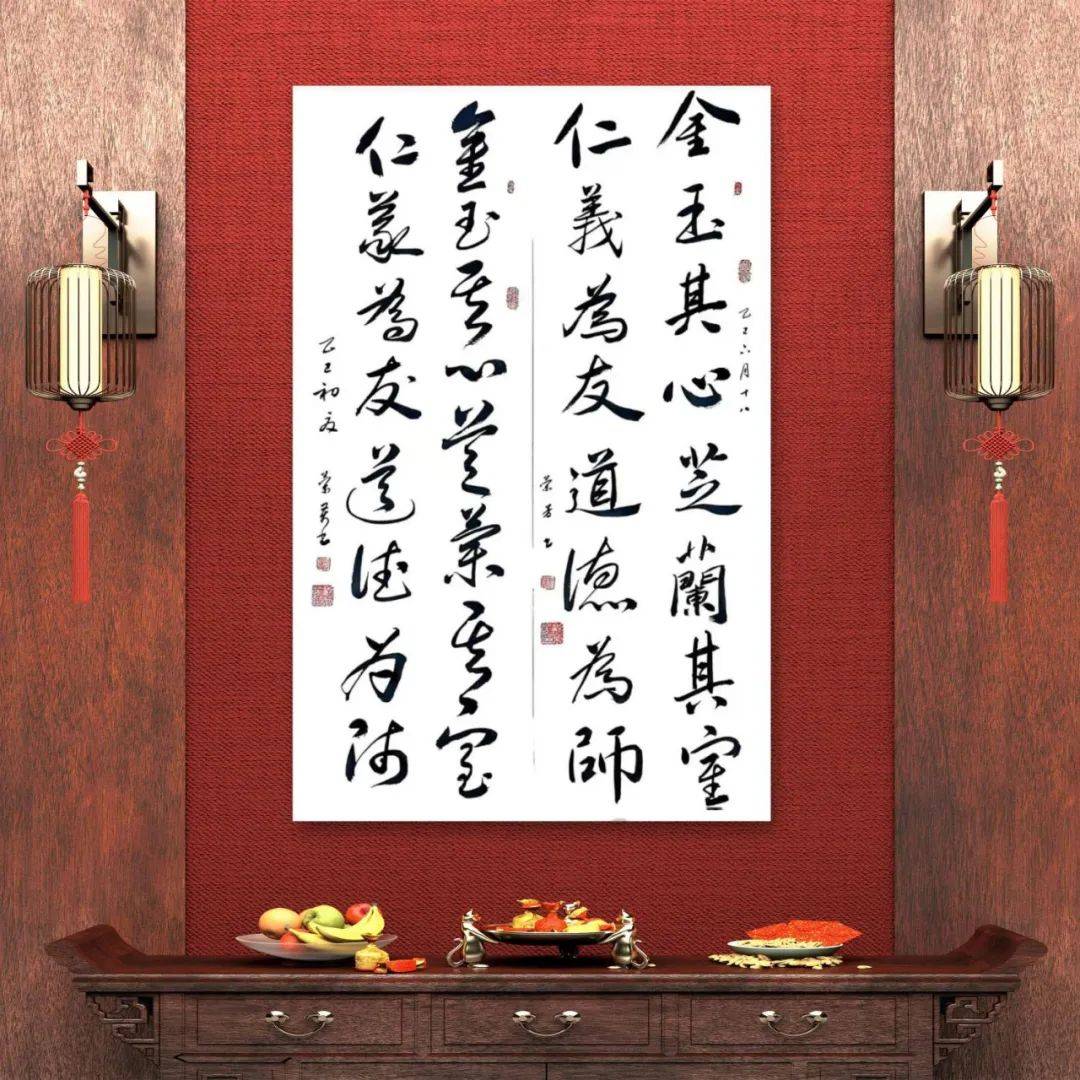 金玉其心芝蘭其室
乙巳六月十八
仁義為友道德為師
荣芳
金玉其心芝蘭其室
仁義為友道德为师
乙巳初夏 荣芳书